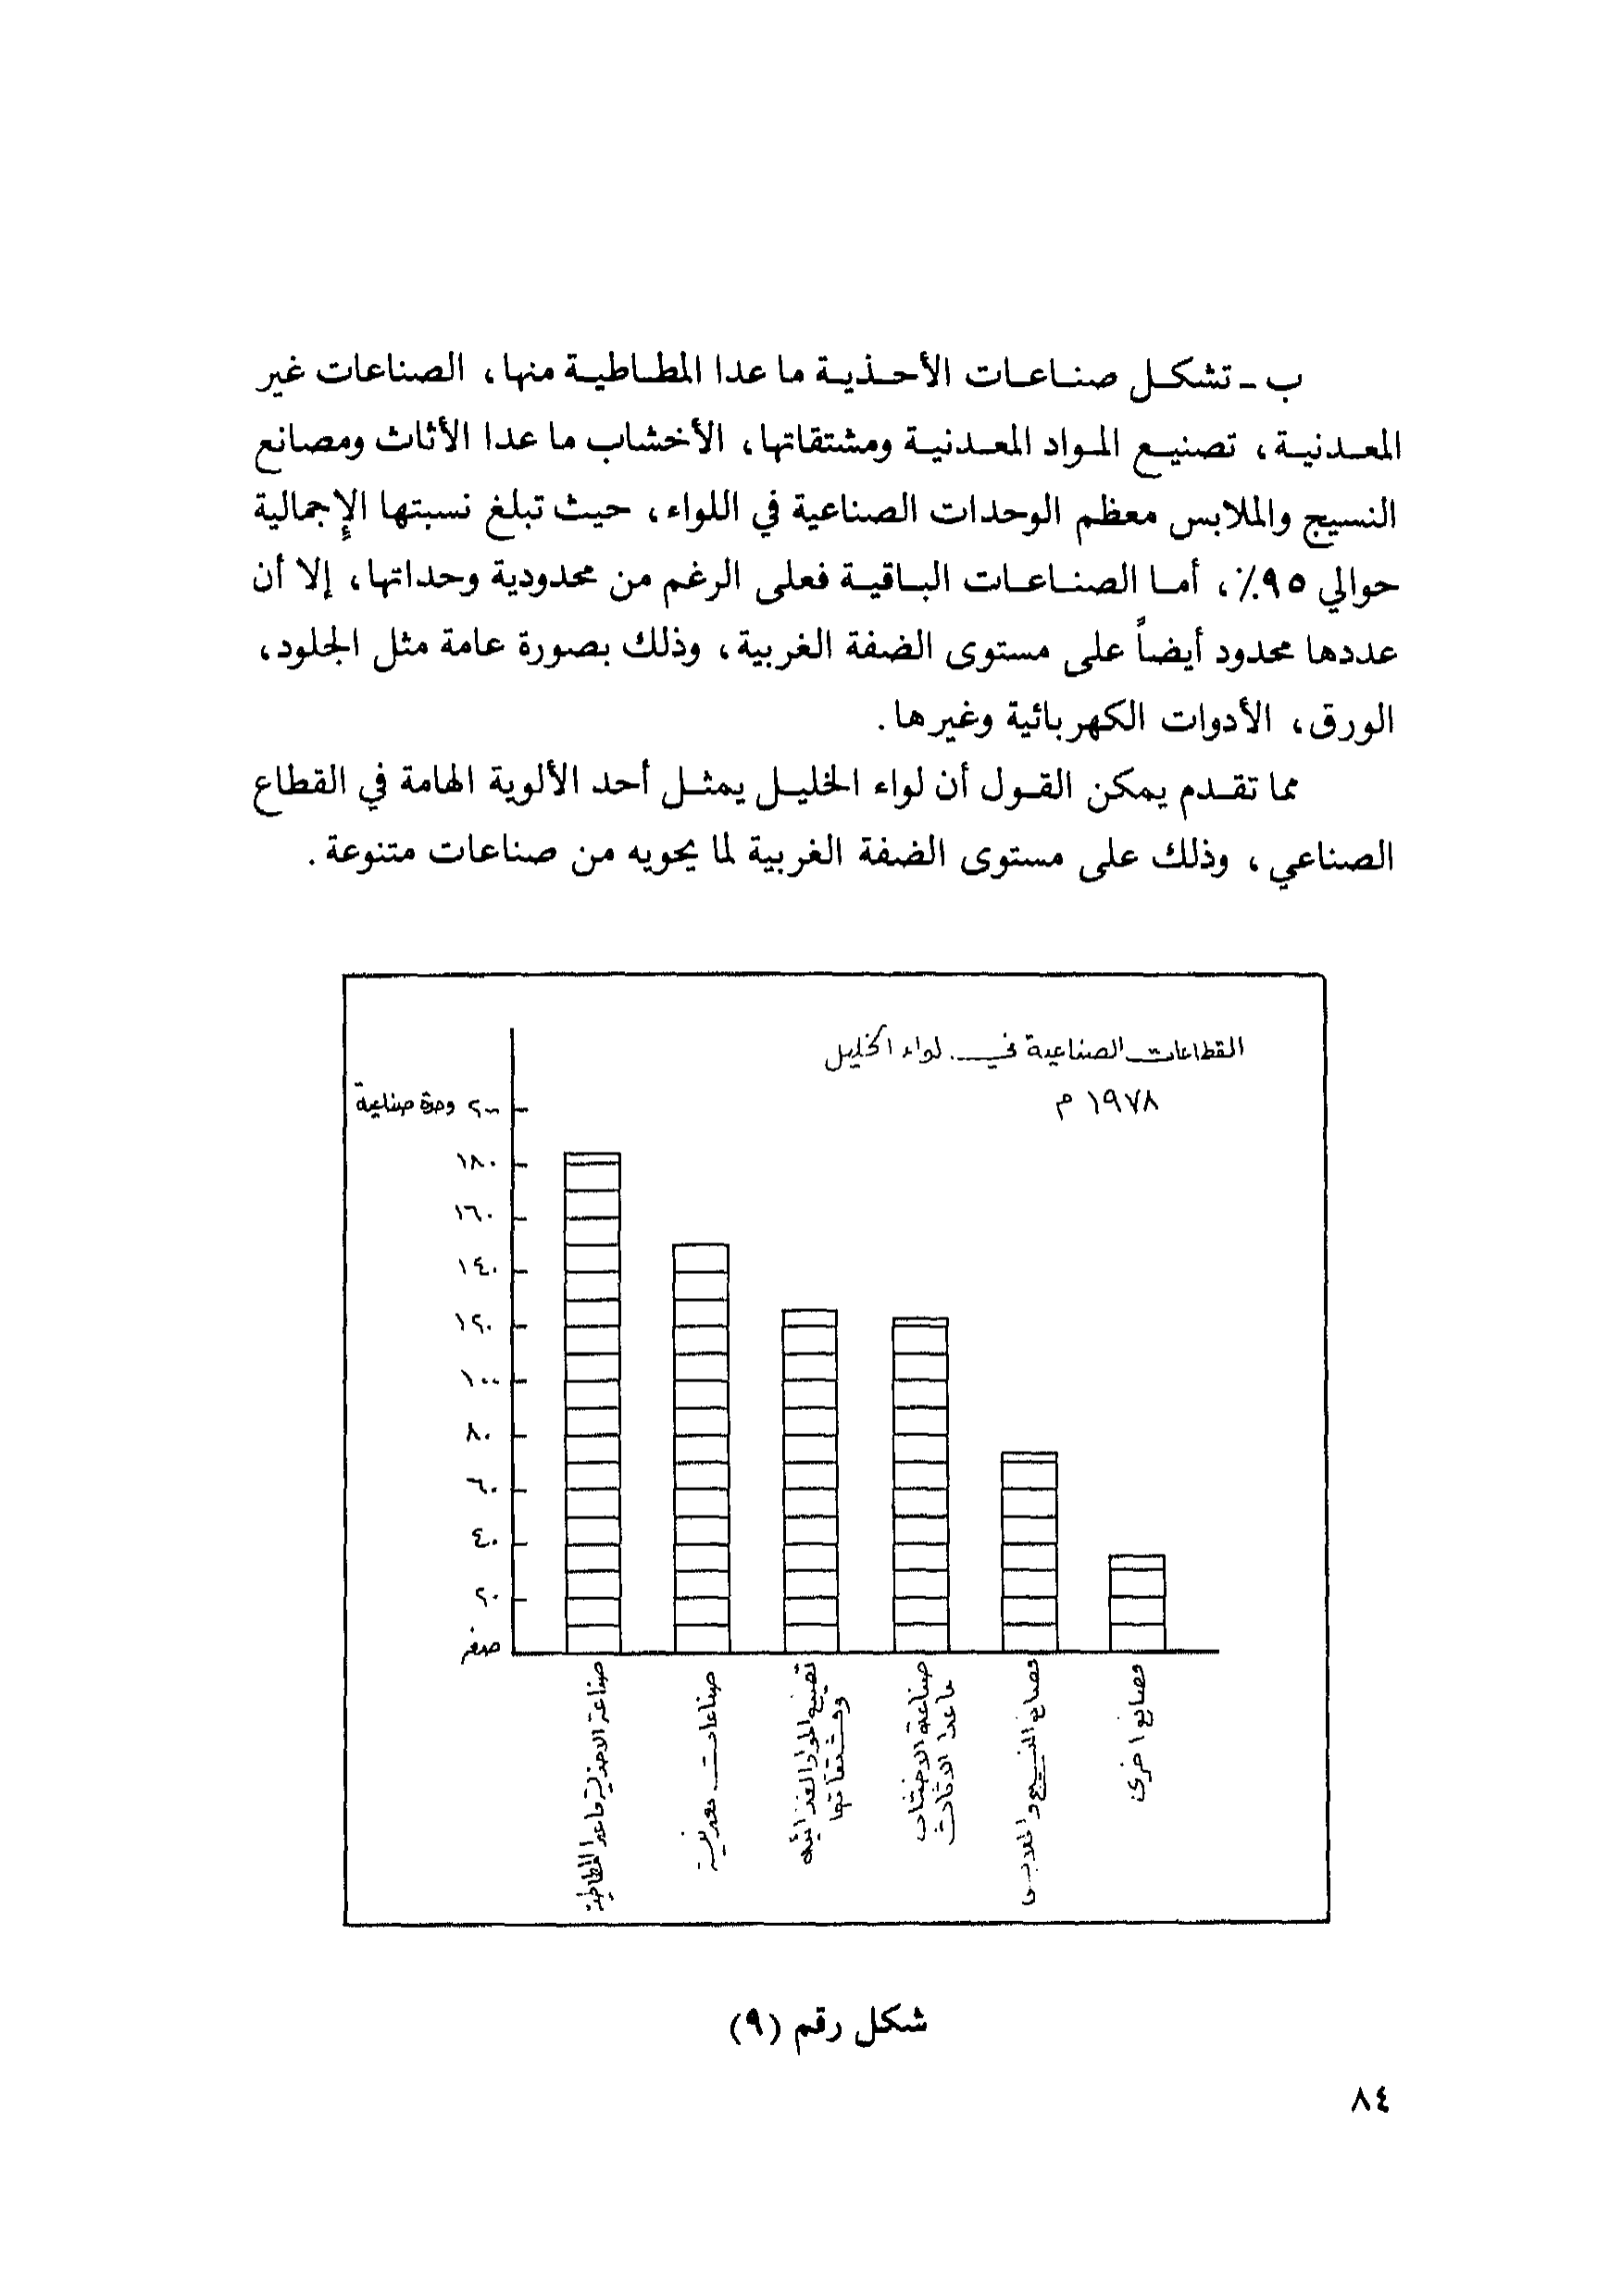 ب ـ تشكل صناعات الأحذية ما عدا المطاطية منها، الصناعات غير
المعدنية، تصنيع المواد المعدنية ومشتقاتها، الأخشاب ما عدا الأثاث ومصانع
النسيج والملابس معظم الوحدات الصناعية في اللواء، حيث تبلغ نسبتها الإجمالية
حوالي ٩٥٪، أما الصناعات الباقية فعلى الرغم من محدودية وحداتها، إلا أن
عددها محدود أيضاً على مستوى الضفة الغربية، وذلك بصورة عامة مثل الجلود،
الورق، الأدوات الكهربائية وغيرها.
مما تقدم يمكن القول أن لواء الخليل يمثل أحد الألوية الهامة في القطاع
الصناعي، وذلك على مستوى الضفة الغربية لما يحويه من صناعات متنوعة.
القطاعات الصناعية في لواء الخليل
١٩٧٨ م
٢٠٠ وحدة صناعية
١٨٠
١٦٠
١٤٠
١٢٠
١٠٠
٨٠
٦٠
٤٠
٢٠
صفر
صناعة الاحذية ماعدا المطاطية
صناعات معدنية
تصنيع المواد الغذائيه
ومشتقاتها
صناعة الاخشاب
ماعدا الاثاث
مصانع النسيج والملابس
مصانع اخرى
شكل رقم (٩)
٨٤